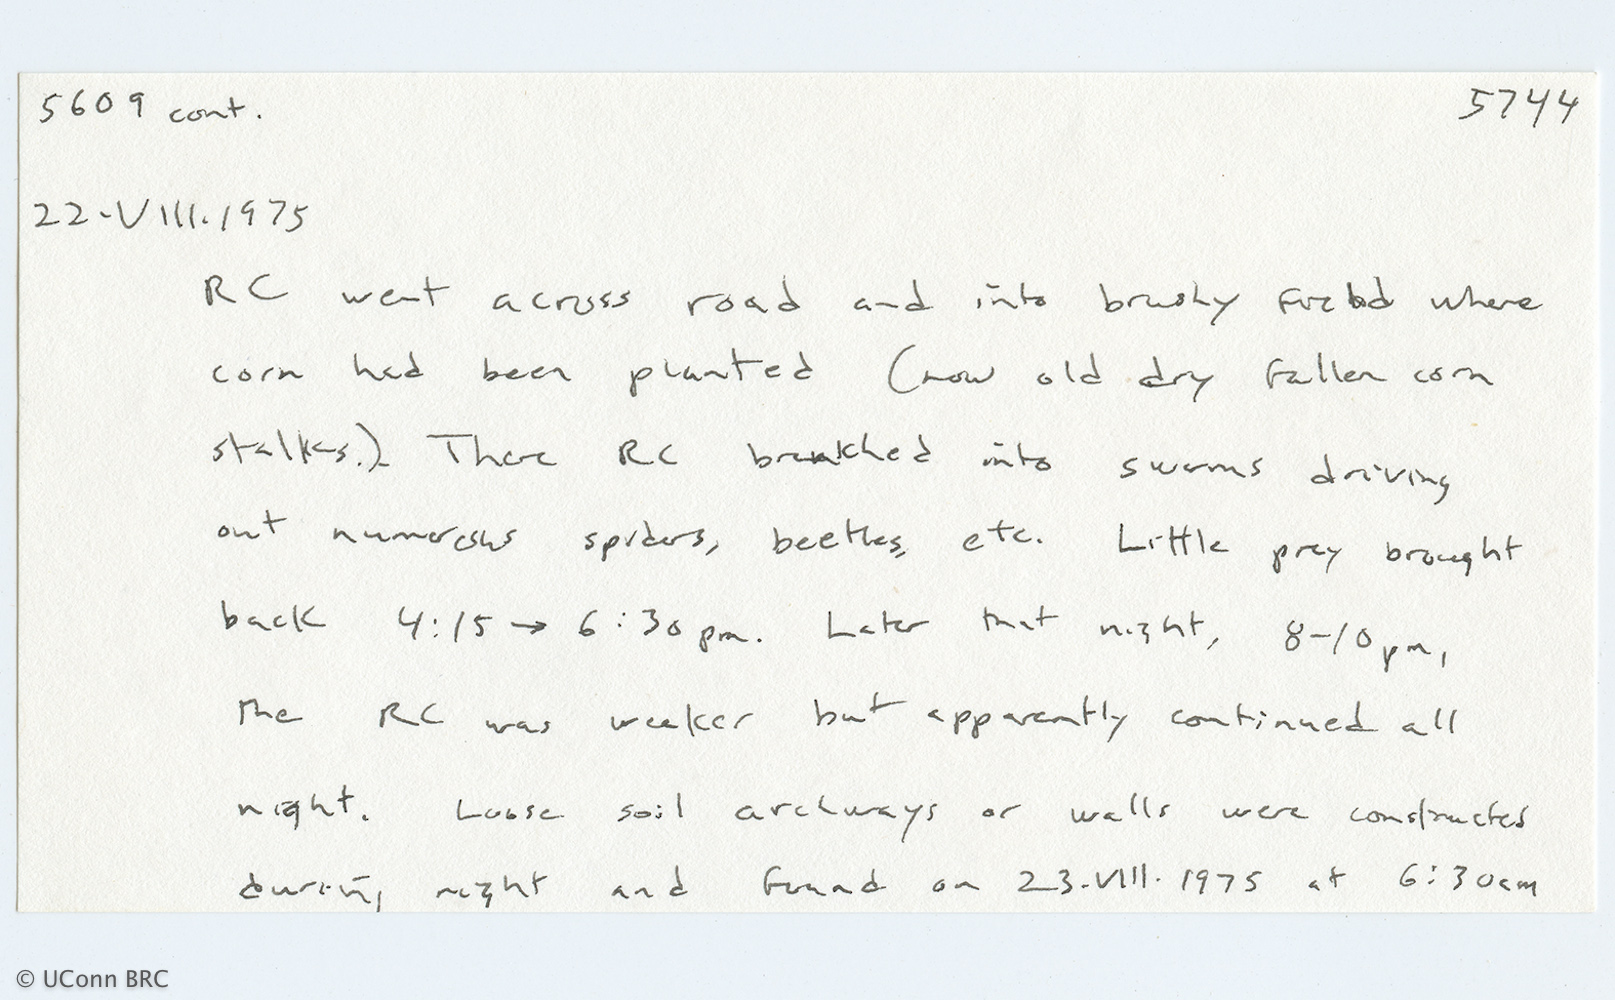 5609 cont.
5744
22.VIII.1975
RC went across road and into brushy field where
corn had been planted (now old dry fallen corn
stalks.). There RC branched into swarms driving
out numerous spiders, beetles, etc. Little prey brought
back 4:15 → 6:30 pm. Later that night, 8-10 pm,
the RC was weaker but apparently continued all
night. Loose soil archways or walls were constructed
during night and found on 23.VIII.1975 at 6:30am
© UConn BRC